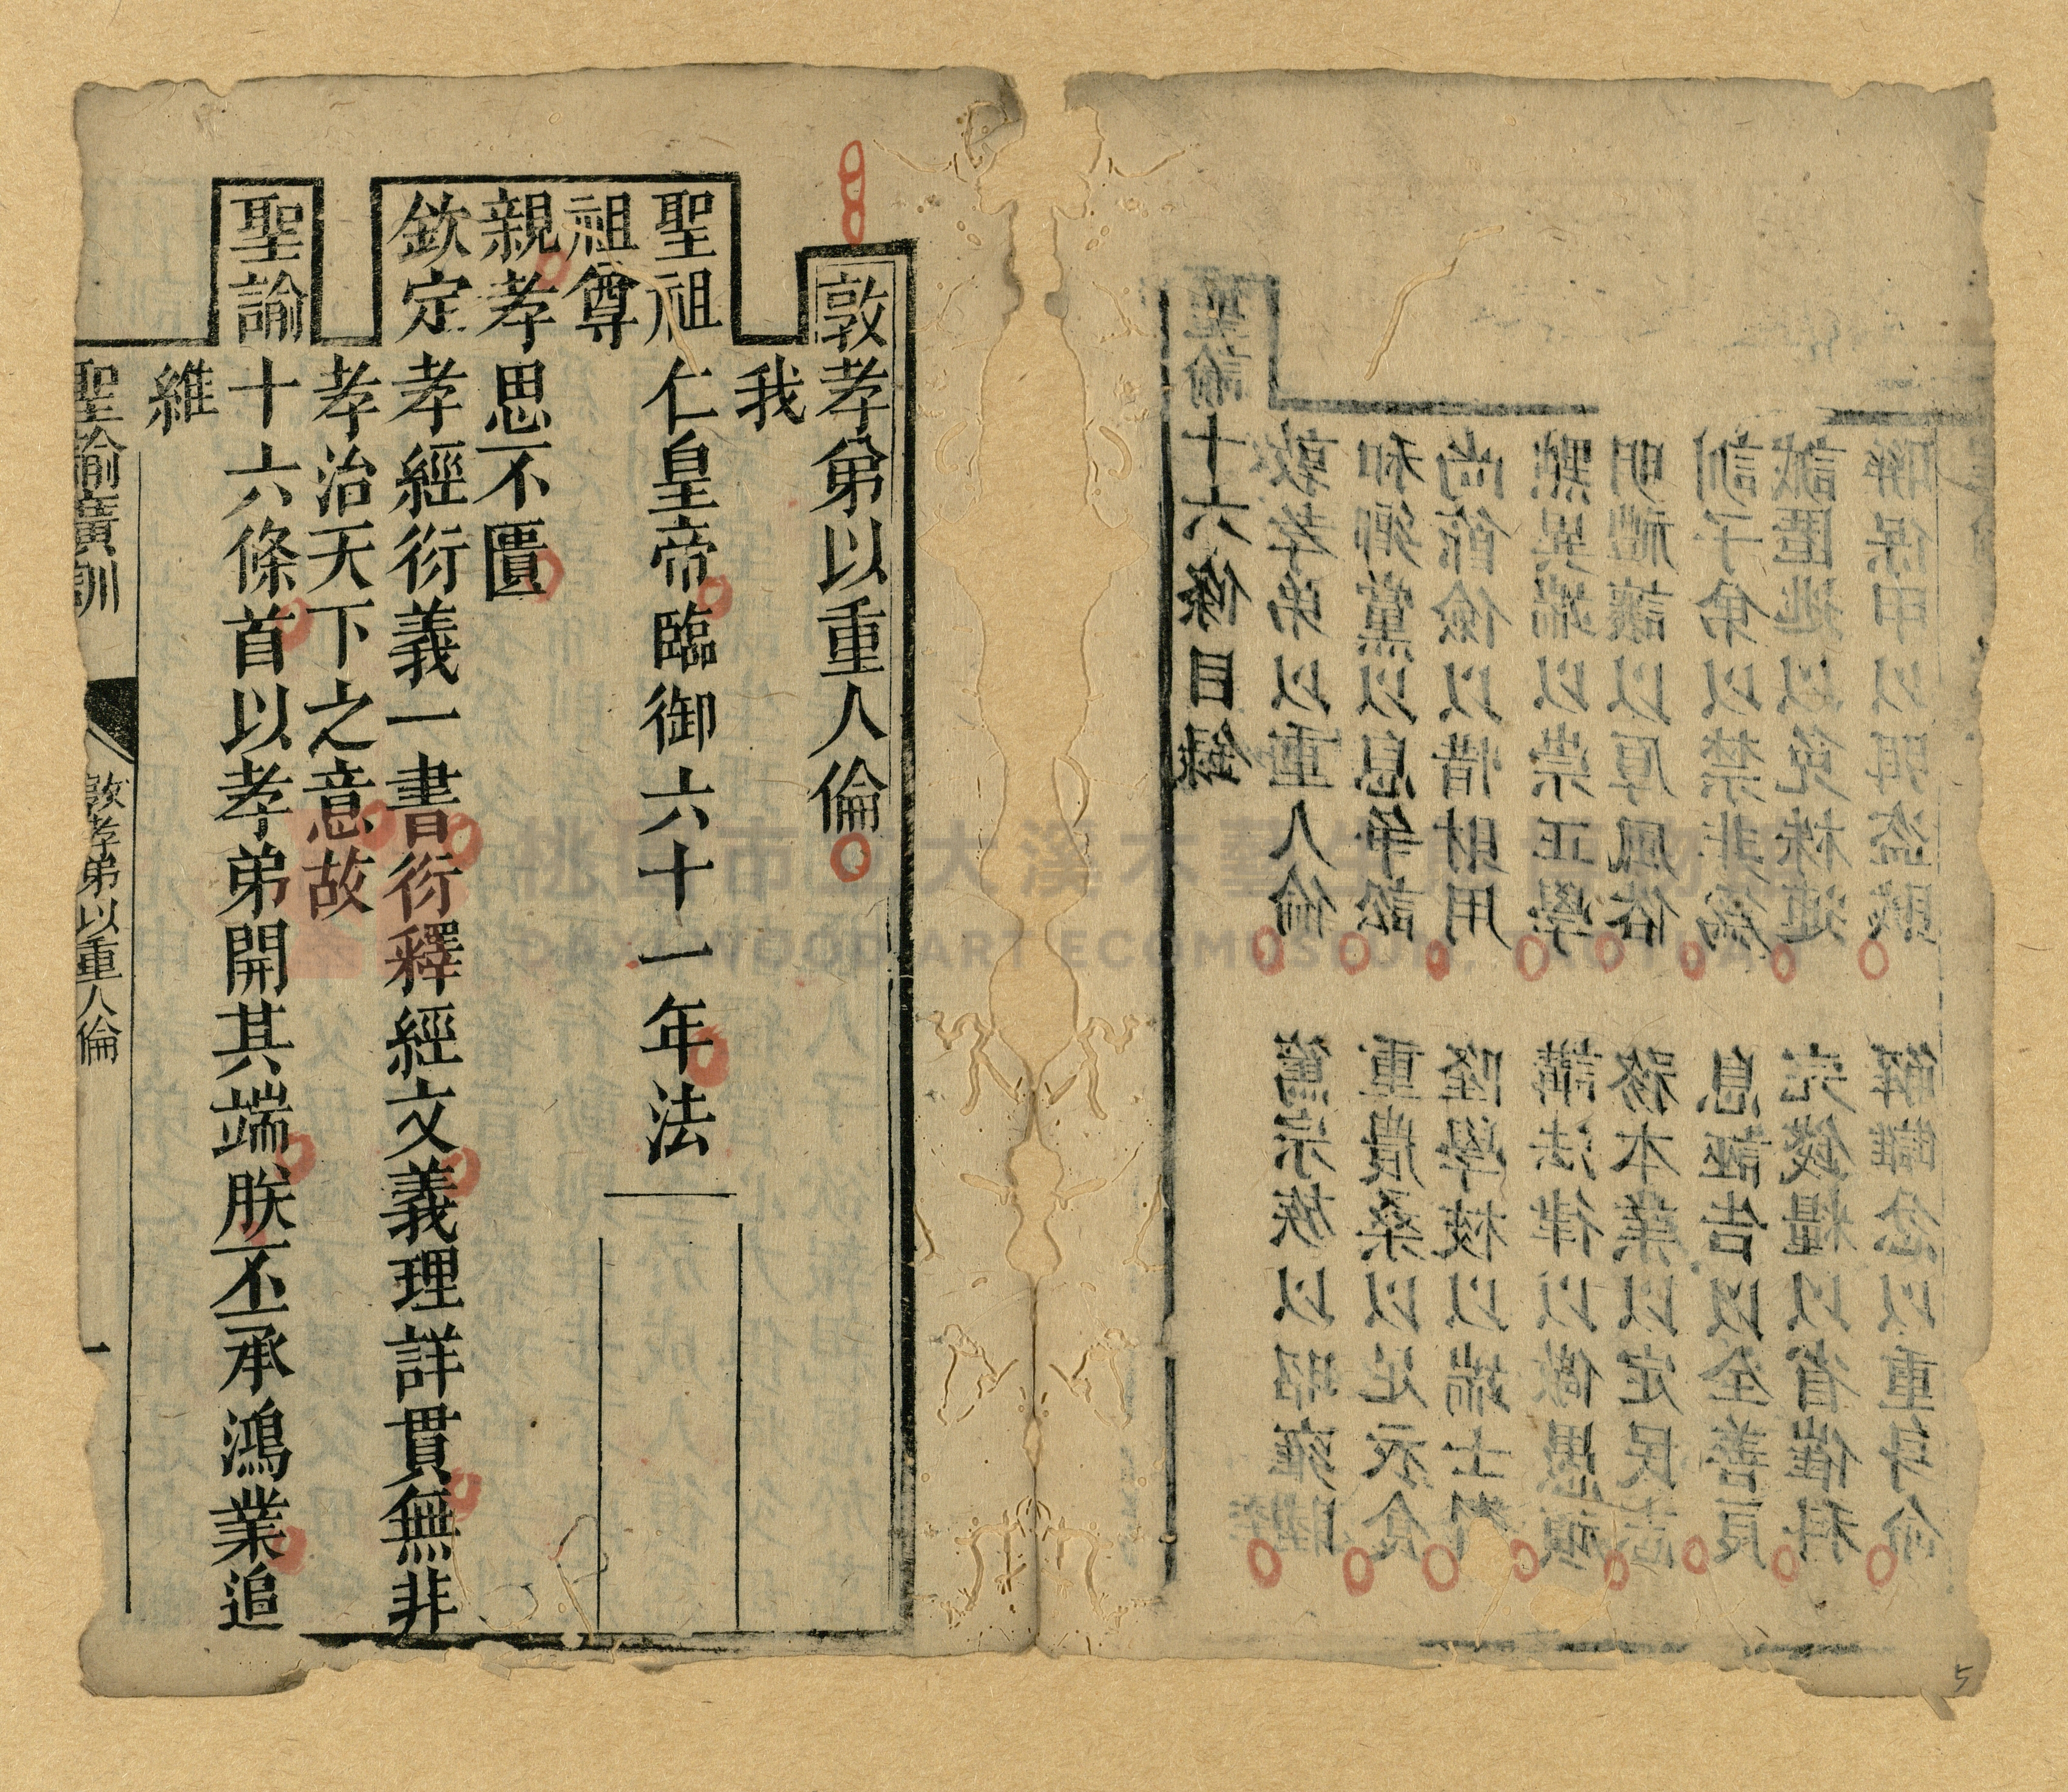 聖諭十六條目錄
敦孝弟以重人倫 篤宗族以昭雍睦
和鄉黨以息爭訟 重農桑以足衣食
尚節儉以惜財用 隆學校以端士習
黜異端以崇正學 講法律以儆愚頑
明禮讓以厚風俗 務本業以定民志
訓子弟以禁非為 息誣告以全善良
誡匿逃以免株連 完錢糧以省催科
聯保甲以弭盜賊 解讎忿以重身命
敦孝弟以重人倫
我
聖祖仁皇帝臨御六十一年法
祖尊
親孝思不匱
欽定孝經衍義一書衍釋經文義理詳貫無非
孝治天下之意故
聖諭十六條首以孝弟開其端朕丕承鴻業追
維
聖諭廣訓 敦孝弟以重人倫 一
5
桃園市立大溪木藝生態博物館
DAXI WOOD ART ECOMUSEUM, TAOYUAN